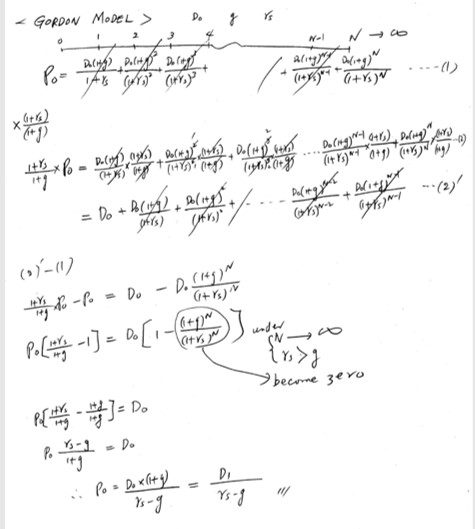 < GORDON MODEL > D₀ g rs
0 1 2 3 4 N-1 N → ∞
P₀ = D₀(1+g)/(1+rs) + D₀(1+g)²/(1+rs)² + D₀(1+g)³/(1+rs)³ + / + D₀(1+g)^(N-1)/(1+rs)^(N-1) + D₀(1+g)^N/(1+rs)^N ‐‐‐‐‐(1)
× (1+rs)/(1+g)
(1+rs)/(1+g) × P₀ = D₀(1+g)/(1+rs) × (1+rs)/(1+g) + D₀(1+g)²/(1+rs)² × (1+rs)/(1+g) + D₀(1+g)³/(1+rs)³ (1+rs)/(1+g) ‐‐‐‐ D₀(1+g)^(N-1)/(1+rs)^(N-1) × (1+rs)/(1+g) + D₀(1+g)^N/(1+rs)^N × (1+rs)/(1+g)
= D₀ + D₀(1+g)/(1+rs) + D₀(1+g)²/(1+rs)² + / ‐ ‐‐‐‐ D₀(1+g)^(N-2)/(1+rs)^(N-2) + D₀(1+g)^(N-1)/(1+rs)^(N-1) ‐‐‐(2)'
(2)'-(1)
(1+rs)/(1+g) P₀ - P₀ = D₀ - D₀ (1+g)^N/(1+rs)^N
P₀[(1+rs)/(1+g) - 1] = D₀[1 - (1+g)^N/(1+rs)^N] under {N → ∞
rs > g
→ become zero
P₀[(1+rs)/(1+g) - (1+g)/(1+g)] = D₀
P₀ (rs-g)/(1+g) = D₀
∴ P₀ = D₀×(1+g)/(rs-g) = D₁/(rs-g) ///